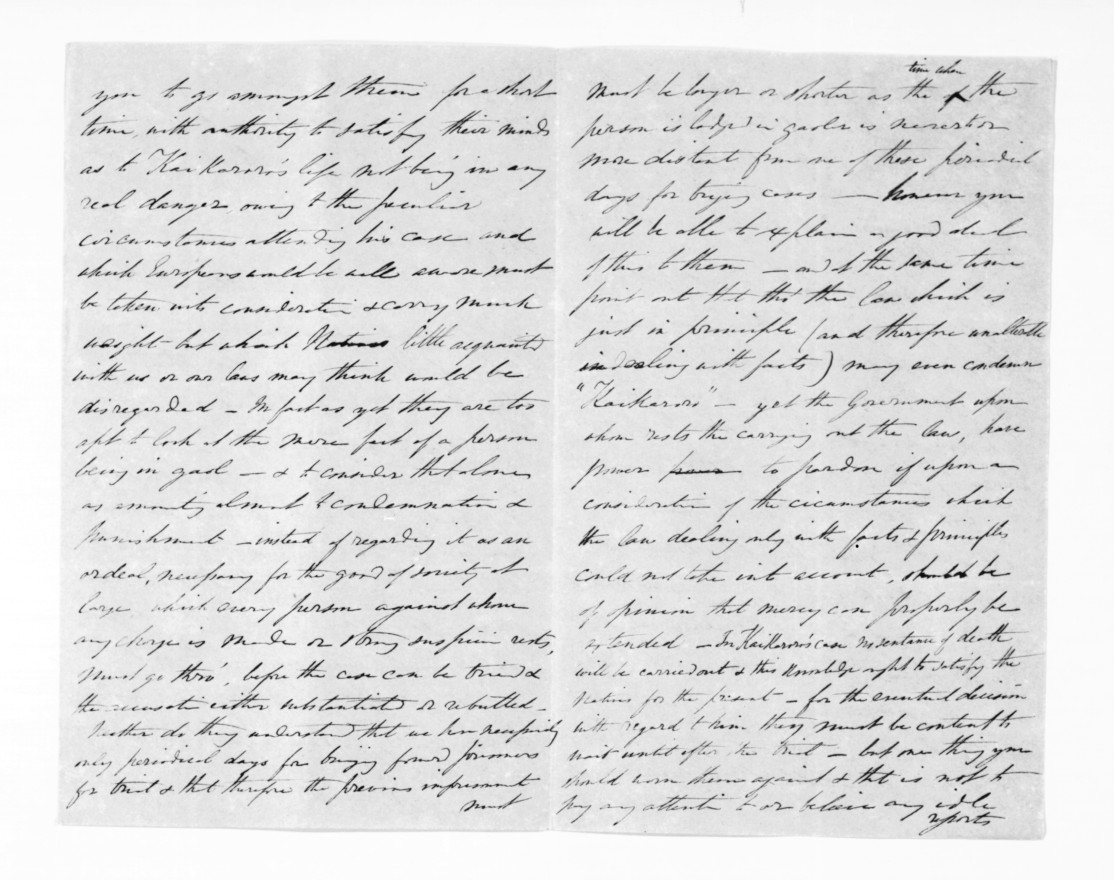 you to go amongst them for a short
time, with authority to satisfy their minds
as to Kaikaroro's life not being in any
real danger, owing to the peculiar
circumstances attending his case and
which Europeans would be well aware must
be taken into consideration & carry much
weight but which Natives little acquainted
with us or our laws may think would be
disregarded - In fact as yet they are too
apt to look at the mere fact of a person
being in gaol - & to consider that alone
as amounting almost to condemnation &
punishment - instead of regarding it as an
ordeal, necessary for the good of society at
large, which every person against whom
any charge is made or strong suspicion rests,
must go thro', before the case can be tried &
the accusation either substantiated or rebutted -
Neither do they understand that we have necessarily
only periodical days for bringing forward prisoners
for trial & that therefore the previous imprisonment
must
time when
must be longer or shorter as the the
person is lodged in gaol is nearer to or
more distant from one of these periodical
days for trying cases - however you
will be able to explain a good deal
of this to them - and at the same time
point out that tho' the law which is
just in principle (and therefore unalterable
in dealing with facts) may even condemn
"Kaikaroro" - yet the Government upon
whom rests the carrying out the law, have
power to pardon if upon a
consideration of the circumstances which
the law dealing only with facts & principles
could not take into account, should be
of opinion that mercy can properly be
extended - In Kaikaroro's case no sentence of death
will be carried out & this knowledge ought to satisfy the
natives for the present - for the eventual decision
with regard to him they must be content to
wait until after the trial - but one thing you
should warn them against & that is not to
pay any attention to or believe any idle
reports